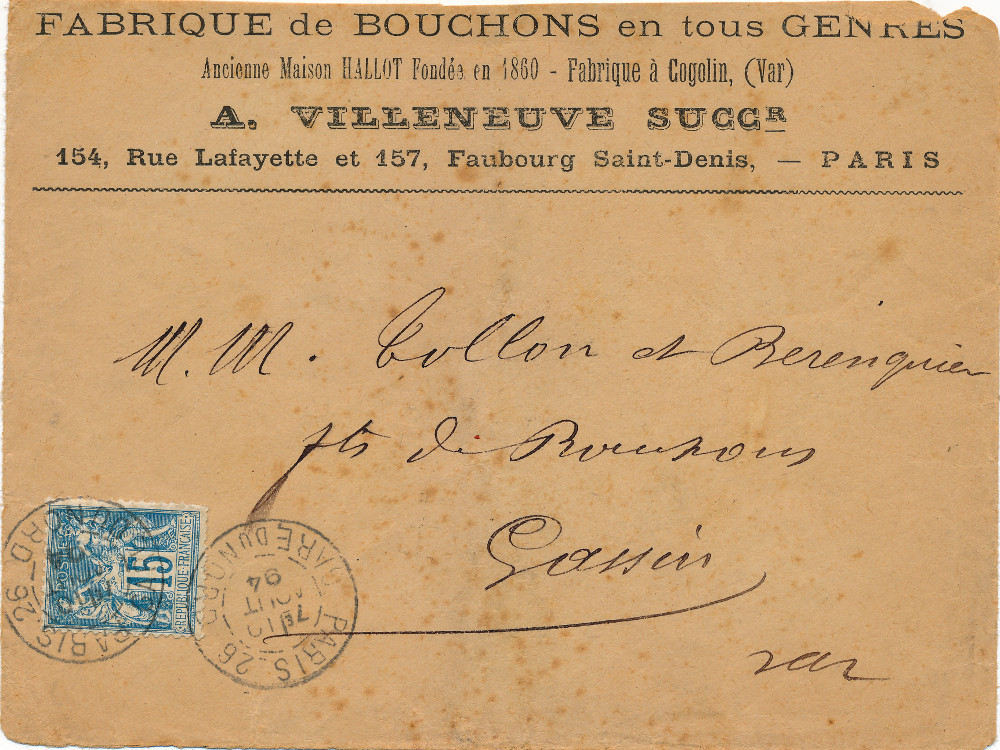 FABRIQUE de BOUCHONS en tous GENRES
Ancienne Maison HALLOT Fondée en 1860 - Fabrique à Cogolin, (Var)
A. VILLENEUVE SUCCR
154, Rue Lafayette et 157, Faubourg Saint-Denis, — PARIS
M. M. Collon et Berenguier
fts de Bouchons
Gassin
var
POSTES
15
REPUBLIQUE FRANÇAISE
PARIS_26
GARE DU NORD
7E
AOUT
94
PARIS
NORD_26